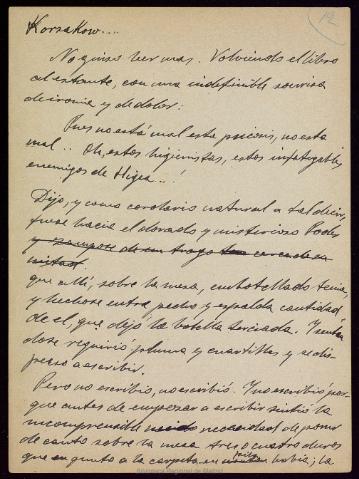 12
Korsakow....
No quiso leer mas. Volviendo el libro
al estante, con una indefinible sonrisa
de ironia y de dolor:
Pues no está mal esta psicosis, no esta
mal... Oh, estos higienistas, estos infatigables
enemigos de Higea...!
Dijo, y como corolario natural a tal decir,
fuese hacia el dorado y misterioso Poder
y
que allí, sobre la mesa, embotellado tenia,
y hechose entre pecho y espalda cantidad
de él, que dejó la botella terciada. Y sentan
dose requirió pluma y cuartillas y se dis-
puso a escribir.
Pero no escribió, no escribió. Y no escribió por-
que antes de empezar a escribir sintió la
incomprensible necesidad de poner
de canto sobre la mesa tres o cuatro duros
que en junto a la carpeta en había; la
Biblioteca Nacional de España